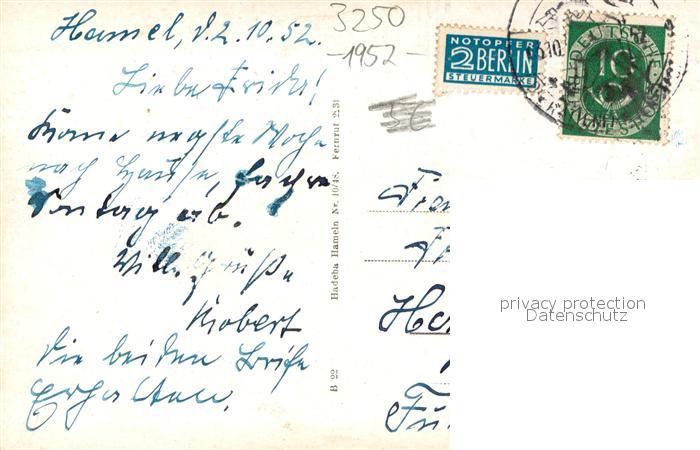 Hameln, d. 2.10.52.
Liebe Frieda!
Komme negste Woche
nach Hause, fahre
Sontag ab.
Viele Grüße
Robert
die beiden Briefe
Erhalten.
3250
-1952-
NOTOPFER
2 BERLIN
STEUERMARKE
DEUTSCHE
10
Hadeha Hameln Nr. 10/48. Fernruf 2131
B 22
privacy protection
Datenschutz